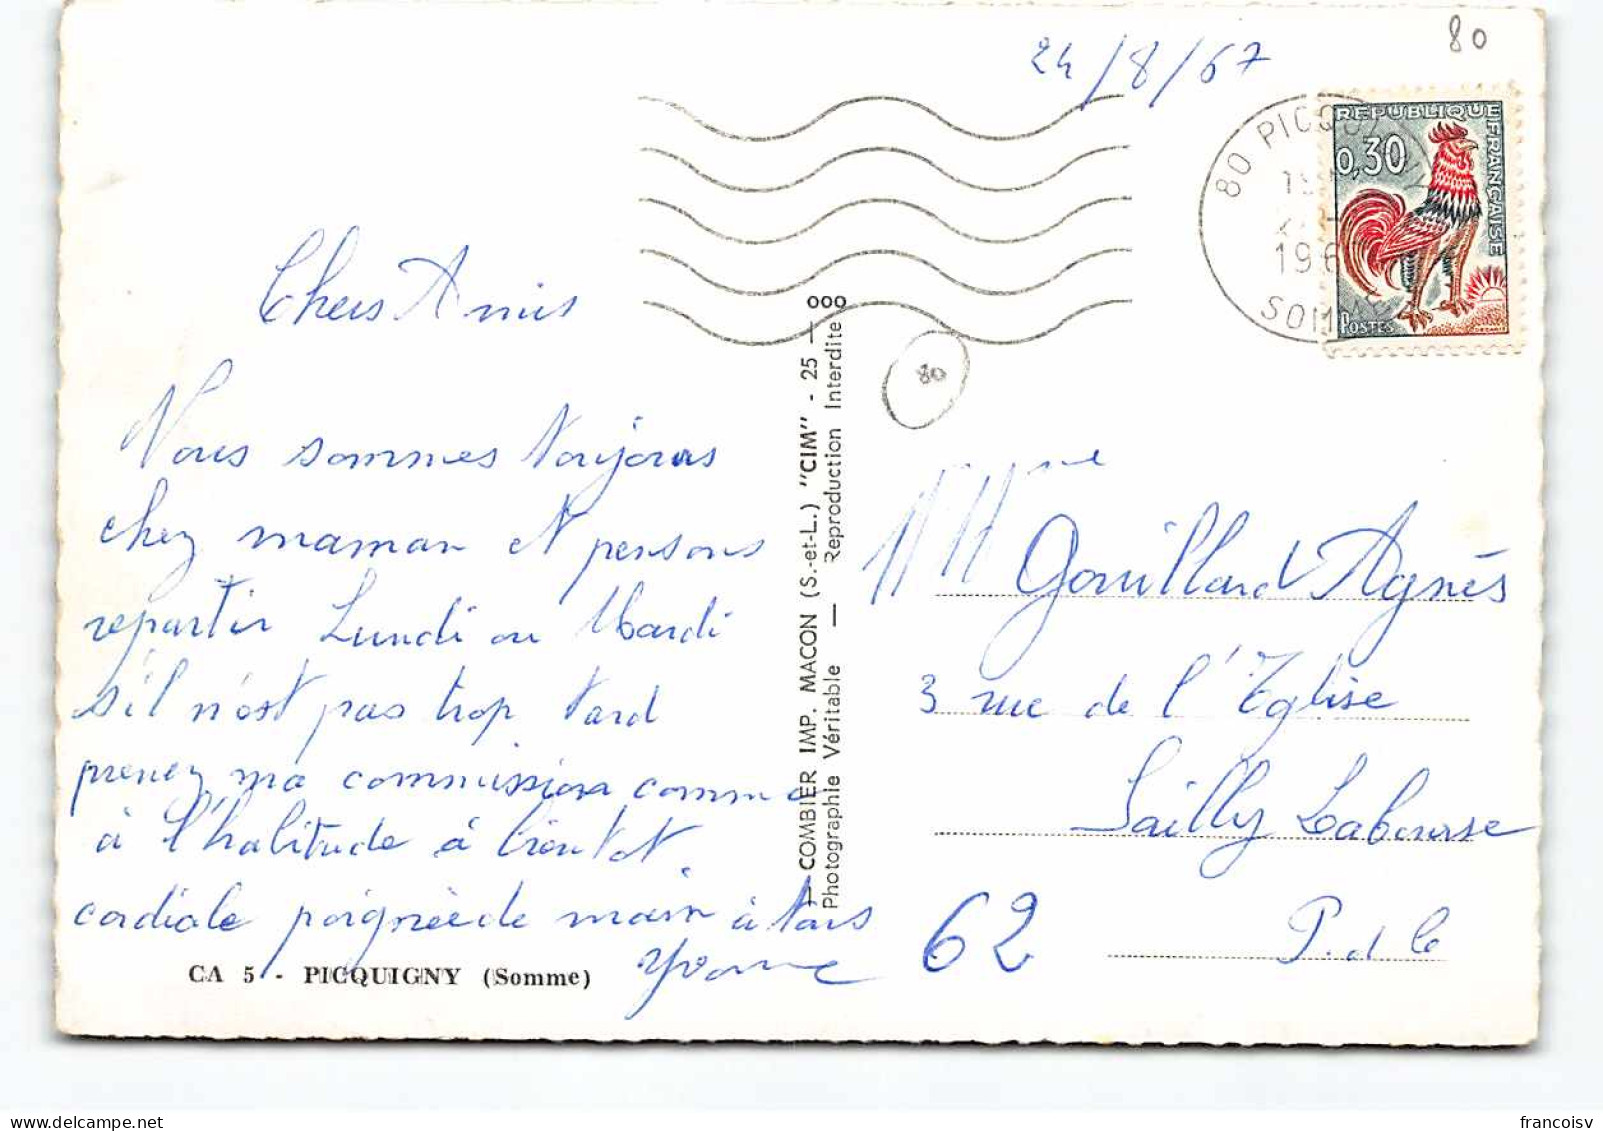 24/8/67
80
80 PICQUIGNY
196
SOMME
REPUBLIQUE FRANÇAISE
0,30
POSTES
Chers Amis
Nous sommes toujours
chez maman et pensons
repartir Lundi ou Mardi
s'il n'est pas trop tard
prenez ma commission comme
à l'habitude à bientot.
cordiale poignée de main à tous
Yvonne
CA 5 - PICQUIGNY (Somme)
COMBIER IMP. MACON (S.-et-L.) "CIM" - 25 — 000
Photographie Véritable — Reproduction Interdite
80
Mme
Gouillard Agnès
3 rue de l'Eglise
Sailly Labourse
62 P. d C
francoisv